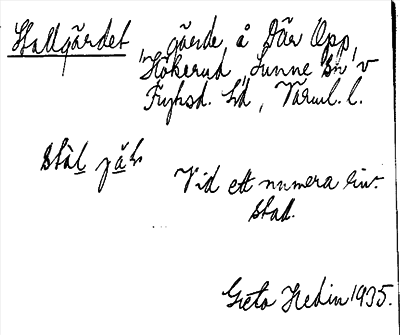 Stallgärdet, gärde å Där Opp,
Hökerud, Sunne sn
Fryksd. hd, Värml. l.
Vid ett numera
stad.
Greta Hedin 1935.